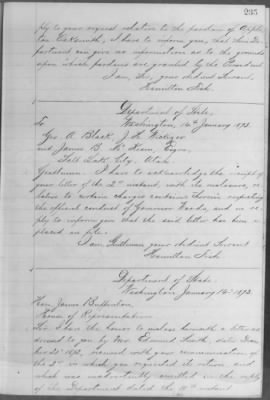 295
ply to your request relative to the pardon of
I have to inform you, that this De-
partment can give no information as to the grounds
upon which pardons are granted by the President
I am Sir, your obedient Servant
Hamilton Fish.
Department of State,
Washington, 14th January 1873.
To
Geo. A. Black, J. H.
and James B. McKean, Esqrs.
Salt Lake City, Utah.
Gentlemen: I have to acknowledge the receipt of
your letter of the 2nd instant, with its enclosure, re-
lative to certain charges contained therein respecting
the official conduct of Governor Woods, and in re-
ply to inform you that the said letter has been
placed on file.
I am, Gentlemen, your obedient Servant
Hamilton Fish
Department of State
Washington January 14th 1873.
Hon. James Buffinton,
House of Representatives
Sir: I have the honor to enclose herewith a letter ad-
dressed to you by Mr. Edmund Smith, dated
1872, received with your communication of
the 2nd in which you requested its return and
which was inadvertently omitted in the reply
of the Department dated the 11th instant.